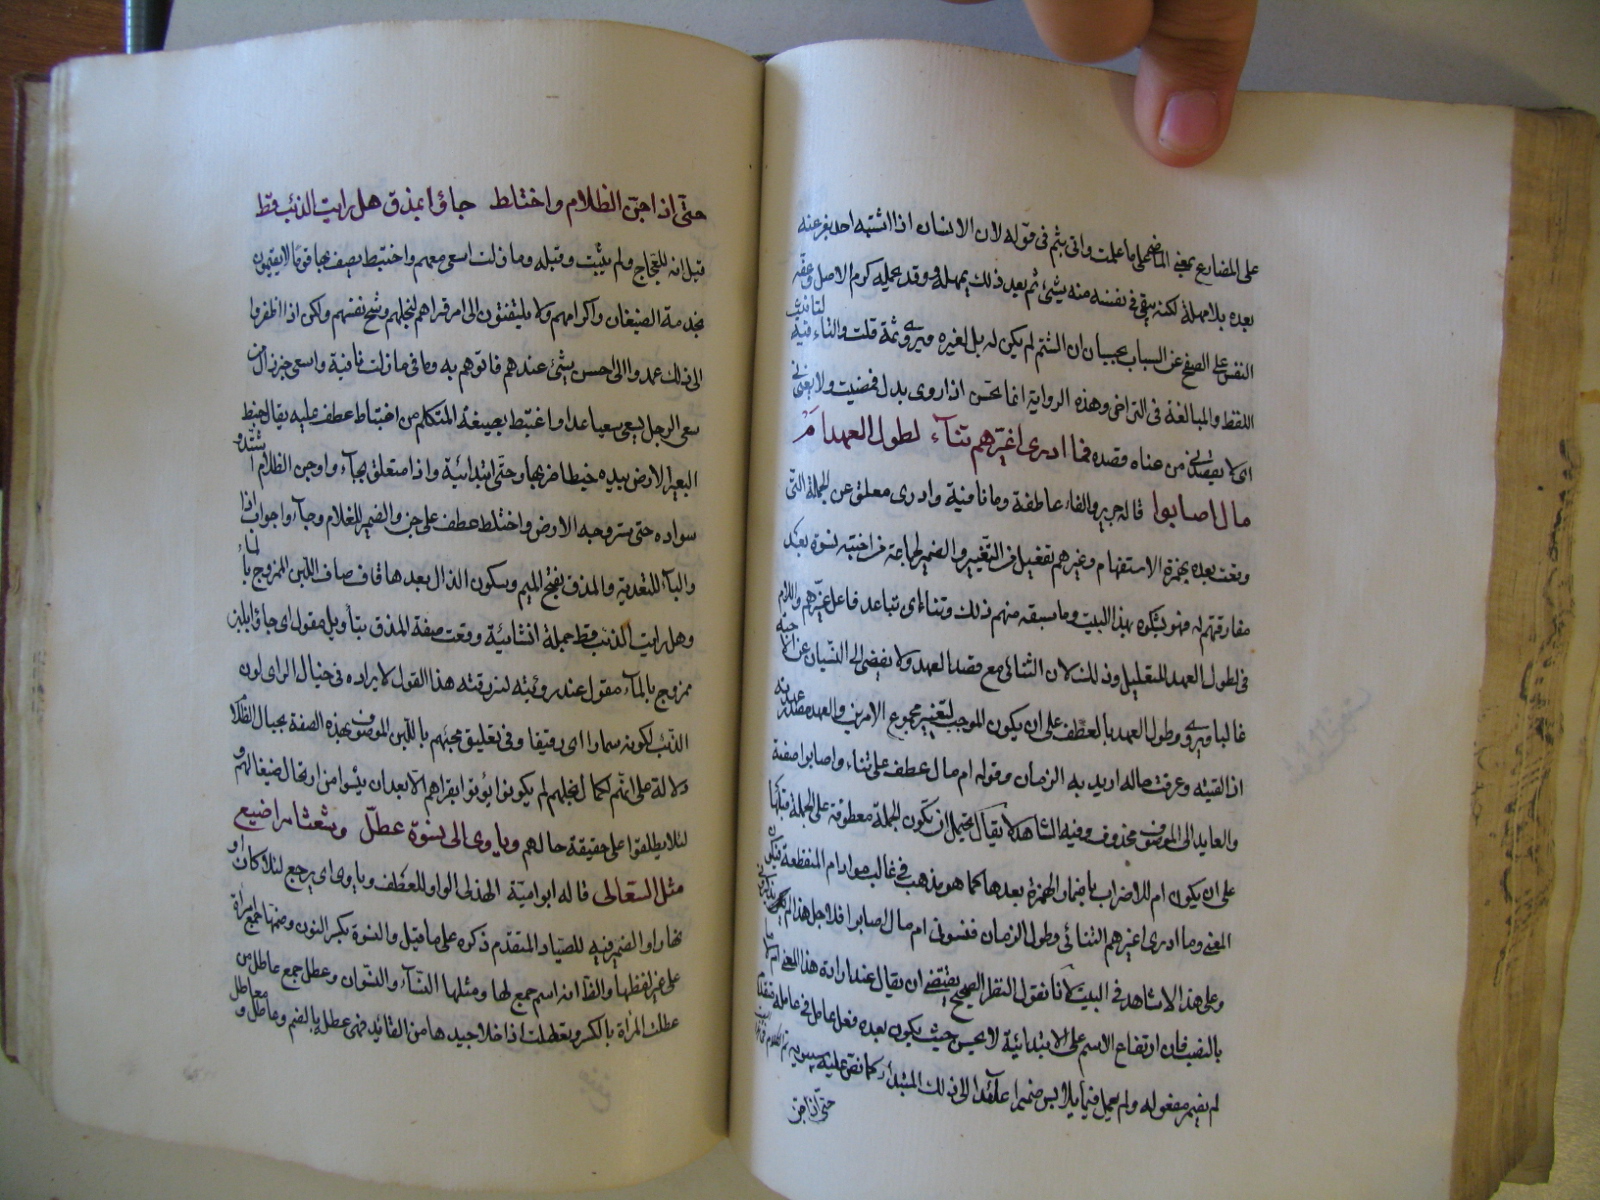 على المضارع بمعنى الماضى على ما علمت واتى بثم فى قوله لان الانسان اذا اشتبه احد يفر عنه
بعده بلا مهلة لكنه يبقى فى نفسه منه شئ ثم بعد ذلك يمهله وقد يحمله كرم الاصل وعفة
النفس على الصفح عن السباب بحسبان ان الشتم لم يكن له بل لغيره ويروى ثمة قلت والتاء فيه لتانيث
اللفظ والمبالغة فى التراخى وهذه الرواية انما تحسن اذا روى بدل فمضيت ولا يعنينى
اى لا يقصدنى من عناه قصده فما ادرى اغيرهم تناء لطول العهد ام
مال اصابوا قاله جرير والفاء عاطفة وما نافية وادرى معلق عن الجملة التى
وقعت بعده بهمزة الاستفهام وغيرهم تفعيل من التغيير والضمير لجماعة
مفارقتهم له فهو يشكوه بهذا البيت وما سبقه منهم ذلك وتناء اى تباعد فاعل غيرهم واللام
فى لطول العهد للتعليل وذلك لان التنائى مع قصد العهد لا يفضى الى النسيان عن الاحبة
غالبا ويروى وطول العهد بالعطف على ان يكون الموجب لتغيير مجموع الامرين والعهد مصدر عهدته
اذا لقيته وعرفت حاله اريد به الزمان وقوله ام مال عطف على تناء واصابوا صفة
والعايد الى الموصوف محذوف وفيه الشاهد لا يقال يحتمل ان تكون الجملة معطوفة على الجملة قبلها
على ان يكون ام للاضراب باضمار الهمزة بعدها كما هو مذهب فى غالب مواد ام المنقطعة فيكون
المعنى وما ادرى اغيرهم التنائى وطول الزمان فنسونى ام مال اصابوا فلاجل هذا
وعلى هذا لا شاهد فى البيت لانا نقول النظر الصحيح يقتضى ان يقال عند ارادة هذا المعنى ام مالا
بالنصب فان ارتفاع الاسم على الابتدائية لا يحسن حيث يكون بعده فعل عامل فى عامله
لم يضمر مفعوله ولم يعمل فيما يلابس ضميرا عائدا الى ذلك المبتدا كما نص عليه سيبويه
حتى اذا جن
حتى اذا جن الظلام واختلط جاؤا بمذق هل رايت الذئب قط
قيل انه للعجاج ولم يثبت وقبله وما زلت اسعى معهم واختبط يصف بها قوما لا يقيمون
بخدمة الضيفان واكرامهم ولا يلتفتون الى امر قراهم لبخلهم وشح نفسهم ولكن اذا اضطروا
الى ذلك عمدوا الى احسن شئ عندهم فاتوهم به وما فى ما زلت نافية واسعى خبر زال من
سعى الرجل يسعى سعيا عدا واختبط بصيغة المتكلم من اختباط عطف عليه يقال خبط
البعير الارض بيده خبطا ضربها وحتى ابتدائية واذا متعلق بجاؤا وجن الظلام اشتد
سواده حتى ستر وجه الارض واختلط عطف على جن والضمير للظلام وجاؤا جواب اذا
والباء للتعدية والمذق بفتح الميم وسكون الذال بعدها قاف صاف اللبن الممزوج بالماء
وهل رايت الذئب قط جملة انشائية وقعت صفة المذق بتاويل مقول اى جاؤا بلبن
ممزوج بالماء مقول عند رؤيته لزرقته هذا القول لايراده فى خيال الرائى لون
الذئب لكونه سمارا اى رقيقا وفى تعليق مجيئهم باللبن الموصوف بهذه الصفة بحيال الظلام
دلالة على انهم لكمال بخلهم لم يكونوا يؤتوا بقراهم الا بعد ان يئسوا من ارتحال ضيفانهم
لئلا يطلقوا على حقيقة حالهم وياوى الى نسوة عطل وشعثا مراضيع
مثل السعالى قاله ابو امية الهذلى الواو للعطف وياوى اى يرجع ليلا كان او
نهارا والضمير فيه للصياد المتقدم ذكره على ما قيل والنسوة بكسر النون وضمها جمع امراة
على غير لفظها والقا انه اسم جمع لها ومثلها النساء والنسوان وعطل جمع عاطل من
عطلت المراة بالكسر وتعطلت اذا خلا جيدها من القلائد فهى عطل بالضم وعاطل و معاطل